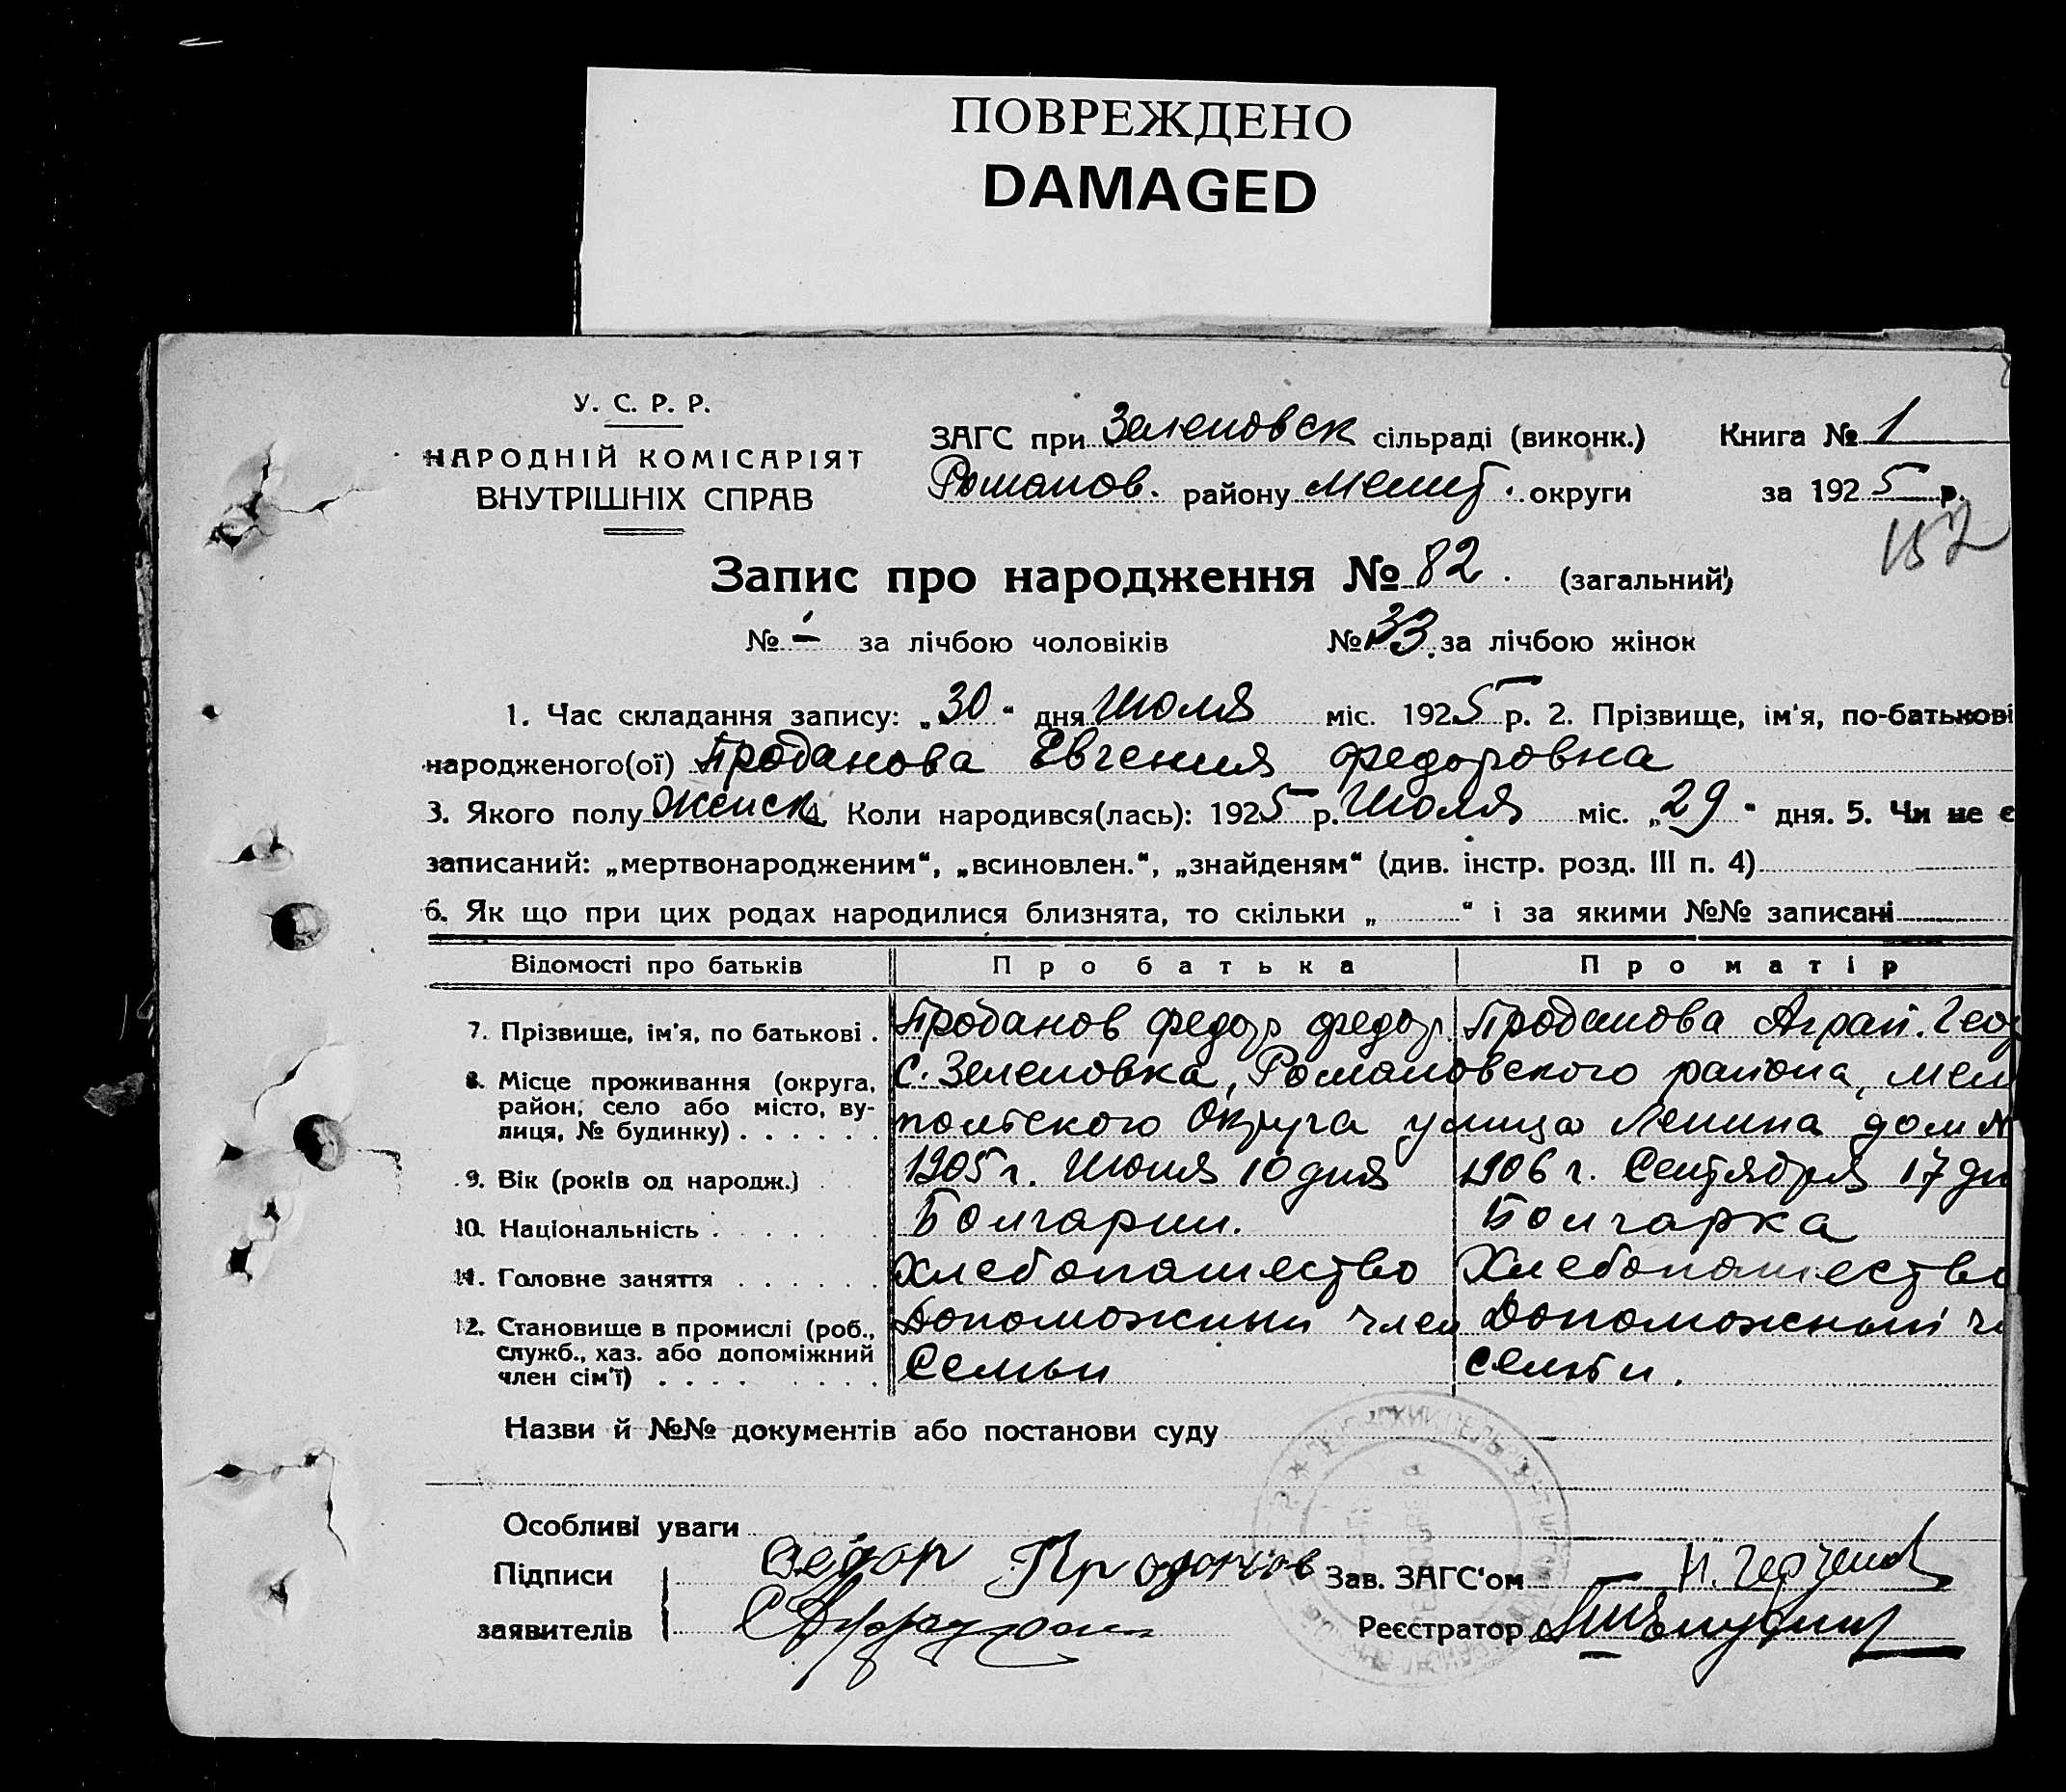 ПОВРЕЖДЕНО
DAMAGED
У. С. Р. Р.
НАРОДНІЙ КОМІСАРІЯТ
ВНУТРІШНІХ СПРАВ
ЗАГС при Зеленовск сільраді (виконк.) Книга № 1
Романов. району Мелит. округи за 1925 р.
152
Запис про народження № 82. (загальний)
№ - за лічбою чоловіків № 33. за лічбою жінок
1. Час складання запису: „30“ дня Июля міс. 1925 р. 2. Прізвище, ім'я, по-батькові
народженого(ої) Проданова Евгения Федоровна
3. Якого полу Женск. Коли народився(лась): 1925 р. Июля міс. „29“ дня. 5. Чи не є
записаний: „мертвонародженим“, „всиновлен.“, „знайденям“ (див. інстр. розд. III п. 4)
6. Як що при цих родах народилися близнята, то скільки „ “ і за якими №№ записані
Відомості про батьків Про батька Про матір
7. Прізвище, ім'я, по батькові . Проданов Федор Федор. Проданова Аграп. Геор
8. Місце проживання (округа, С. Зеленовка, Романовского района, Мели
район, село або місто, ву-
лиця, № будинку) . . . . . . польского Округа улица Ленина дом №
9. Вік (років од народж.) . . 1905 г. Июня 10 дня 1906 г. Сентября 17 дн
10. Національність . . . . . . . Болгарин. Болгарка
11. Головне заняття . . . . . . Хлебопашество Хлебопашество
12. Становище в промислі (роб., Допоможный член Допоможный чл
служб., хаз. або допоміжний
член сім'ї) . . . . . . . . Семьи семьи.
Назви й №№ документів або постанови суду
Особливі уваги
Підписи Федор Проданов Зав. ЗАГС'ом
заявителів Реєстратор